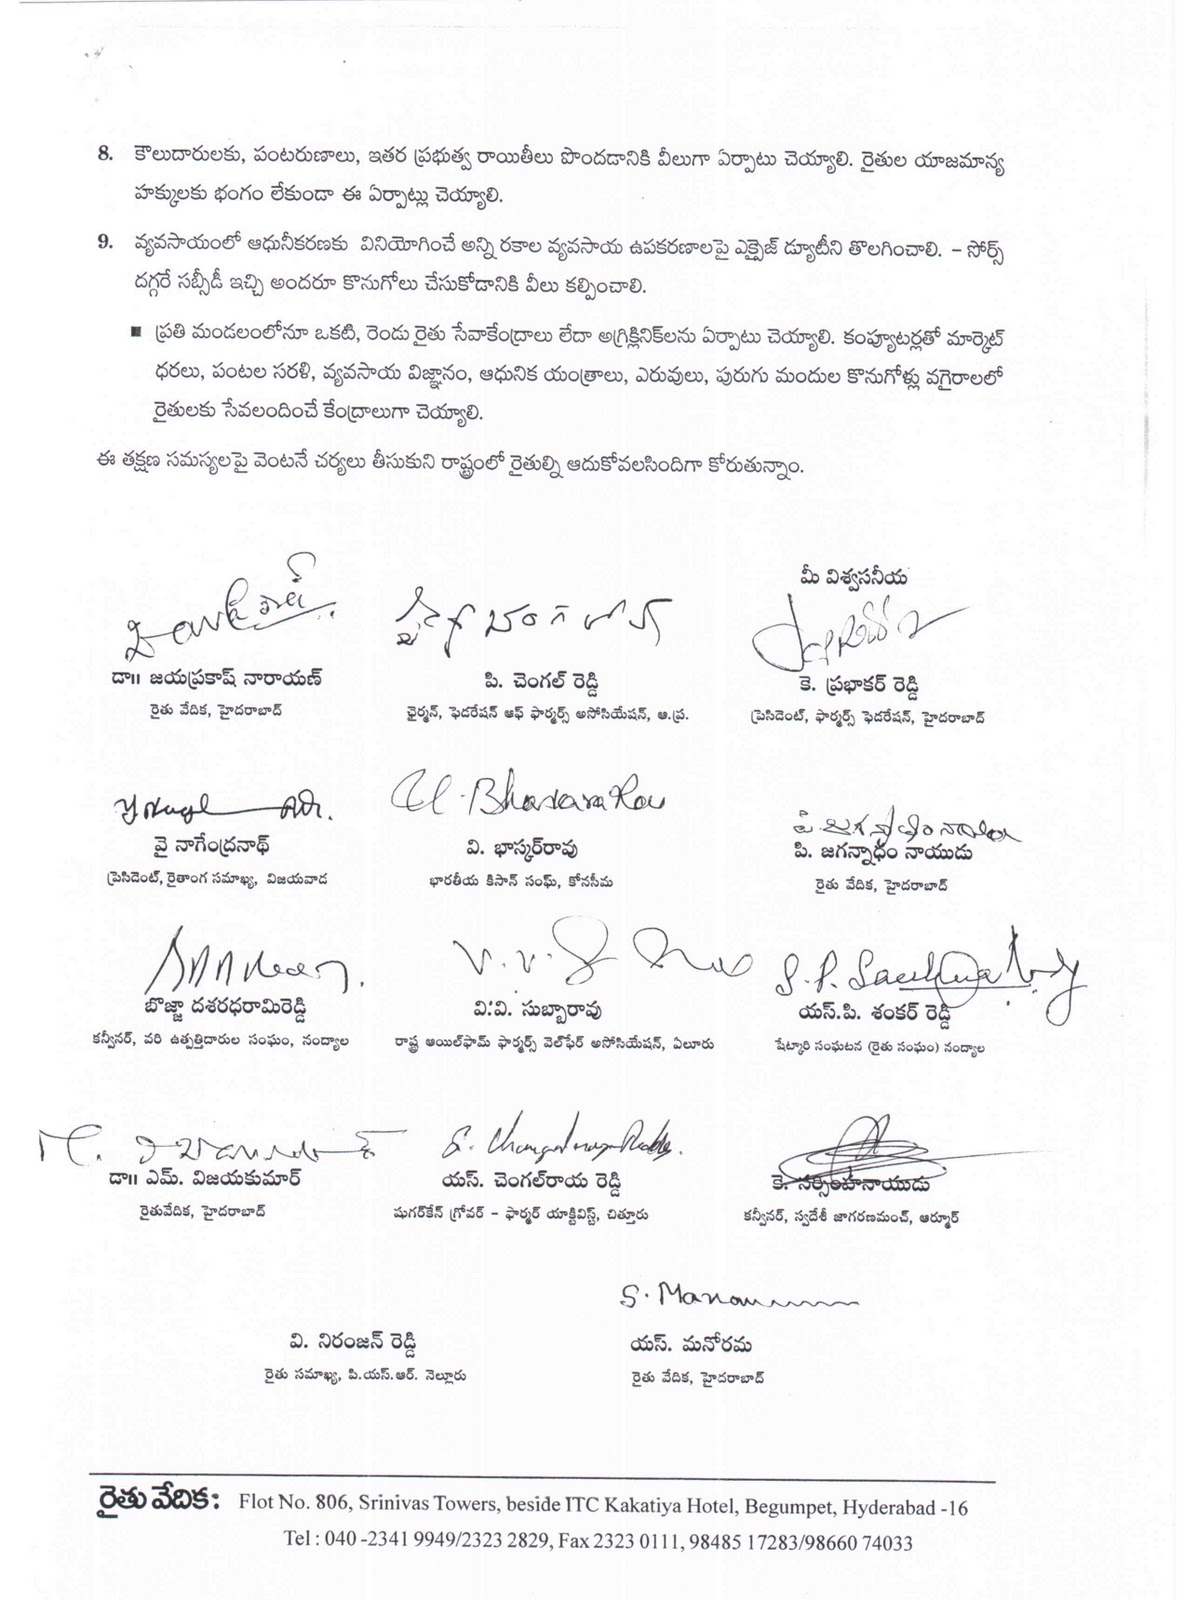 8. కౌలుదారులకు, పంటరుణాలు, ఇతర ప్రభుత్వ రాయితీలు పొందడానికి వీలుగా ఏర్పాటు చెయ్యాలి. రైతుల యాజమాన్య
హక్కులకు భంగం లేకుండా ఈ ఏర్పాట్లు చెయ్యాలి.
9. వ్యవసాయంలో ఆధునీకరణకు వినియోగించే అన్ని రకాల వ్యవసాయ ఉపకరణాలపై ఎక్సైజ్ డ్యూటీని తొలగించాలి. – సోర్స్
దగ్గరే సబ్సీడీ ఇచ్చి అందరూ కొనుగోలు చేసుకోడానికి వీలు కల్పించాలి.
■ ప్రతి మండలంలోనూ ఒకటి, రెండు రైతు సేవాకేంద్రాలు లేదా అగ్రిక్లినిక్‌లను ఏర్పాటు చెయ్యాలి. కంప్యూటర్లతో మార్కెట్
ధరలు, పంటల సరళి, వ్యవసాయ విజ్ఞానం, ఆధునిక యంత్రాలు, ఎరువులు, పురుగు మందుల కొనుగోళ్లు వగైరాలలో
రైతులకు సేవలందించే కేంద్రాలుగా చెయ్యాలి.
ఈ తక్షణ సమస్యలపై వెంటనే చర్యలు తీసుకుని రాష్ట్రంలో రైతుల్ని ఆదుకోవలసిందిగా కోరుతున్నాం.
మీ విశ్వసనీయ
డా॥ జయప్రకాష్ నారాయణ్ పి. చెంగల్ రెడ్డి కె. ప్రభాకర్ రెడ్డి
రైతు వేదిక, హైదరాబాద్ ఛైర్మన్, ఫెడరేషన్ ఆఫ్ ఫార్మర్స్ అసోసియేషన్, ఆ.ప్ర. ప్రెసిడెంట్, ఫార్మర్స్ ఫెడరేషన్, హైదరాబాద్
Bhaskara Rao
వై నాగేంద్రనాథ్ వి. భాస్కర్‌రావు పి. జగన్నాధం నాయుడు
ప్రెసిడెంట్, రైతాంగ సమాఖ్య, విజయవాడ భారతీయ కిసాన్ సంఘ్, కోనసీమ రైతు వేదిక, హైదరాబాద్
బొజ్జా దశరధరామిరెడ్డి వి.వి. సుబ్బారావు యస్.పి. శంకర్ రెడ్డి
కన్వీనర్, వరి ఉత్పత్తిదారుల సంఘం, నంద్యాల రాష్ట్ర ఆయిల్‌ఫామ్ ఫార్మర్స్ వెల్‌ఫేర్ అసోసియేషన్, ఏలూరు షేట్కారి సంఘటన (రైతు సంఘం) నంద్యాల
డా॥ ఎమ్. విజయకుమార్ యస్. చెంగల్‌రాయ రెడ్డి కె. నర్సింహనాయుడు
రైతువేదిక, హైదరాబాద్ షుగర్‌కేన్ గ్రోవర్ – ఫార్మర్ యాక్టివిస్ట్, చిత్తూరు కన్వీనర్, స్వదేశీ జాగరణమంచ్, ఆర్మూర్
వి. నిరంజన్ రెడ్డి యస్. మనోరమ
రైతు సమాఖ్య, పి.యస్.ఆర్. నెల్లూరు రైతు వేదిక, హైదరాబాద్
రైతు వేదిక: Flot No. 806, Srinivas Towers, beside ITC Kakatiya Hotel, Begumpet, Hyderabad -16
Tel : 040 -2341 9949/2323 2829, Fax 2323 0111, 98485 17283/98660 74033